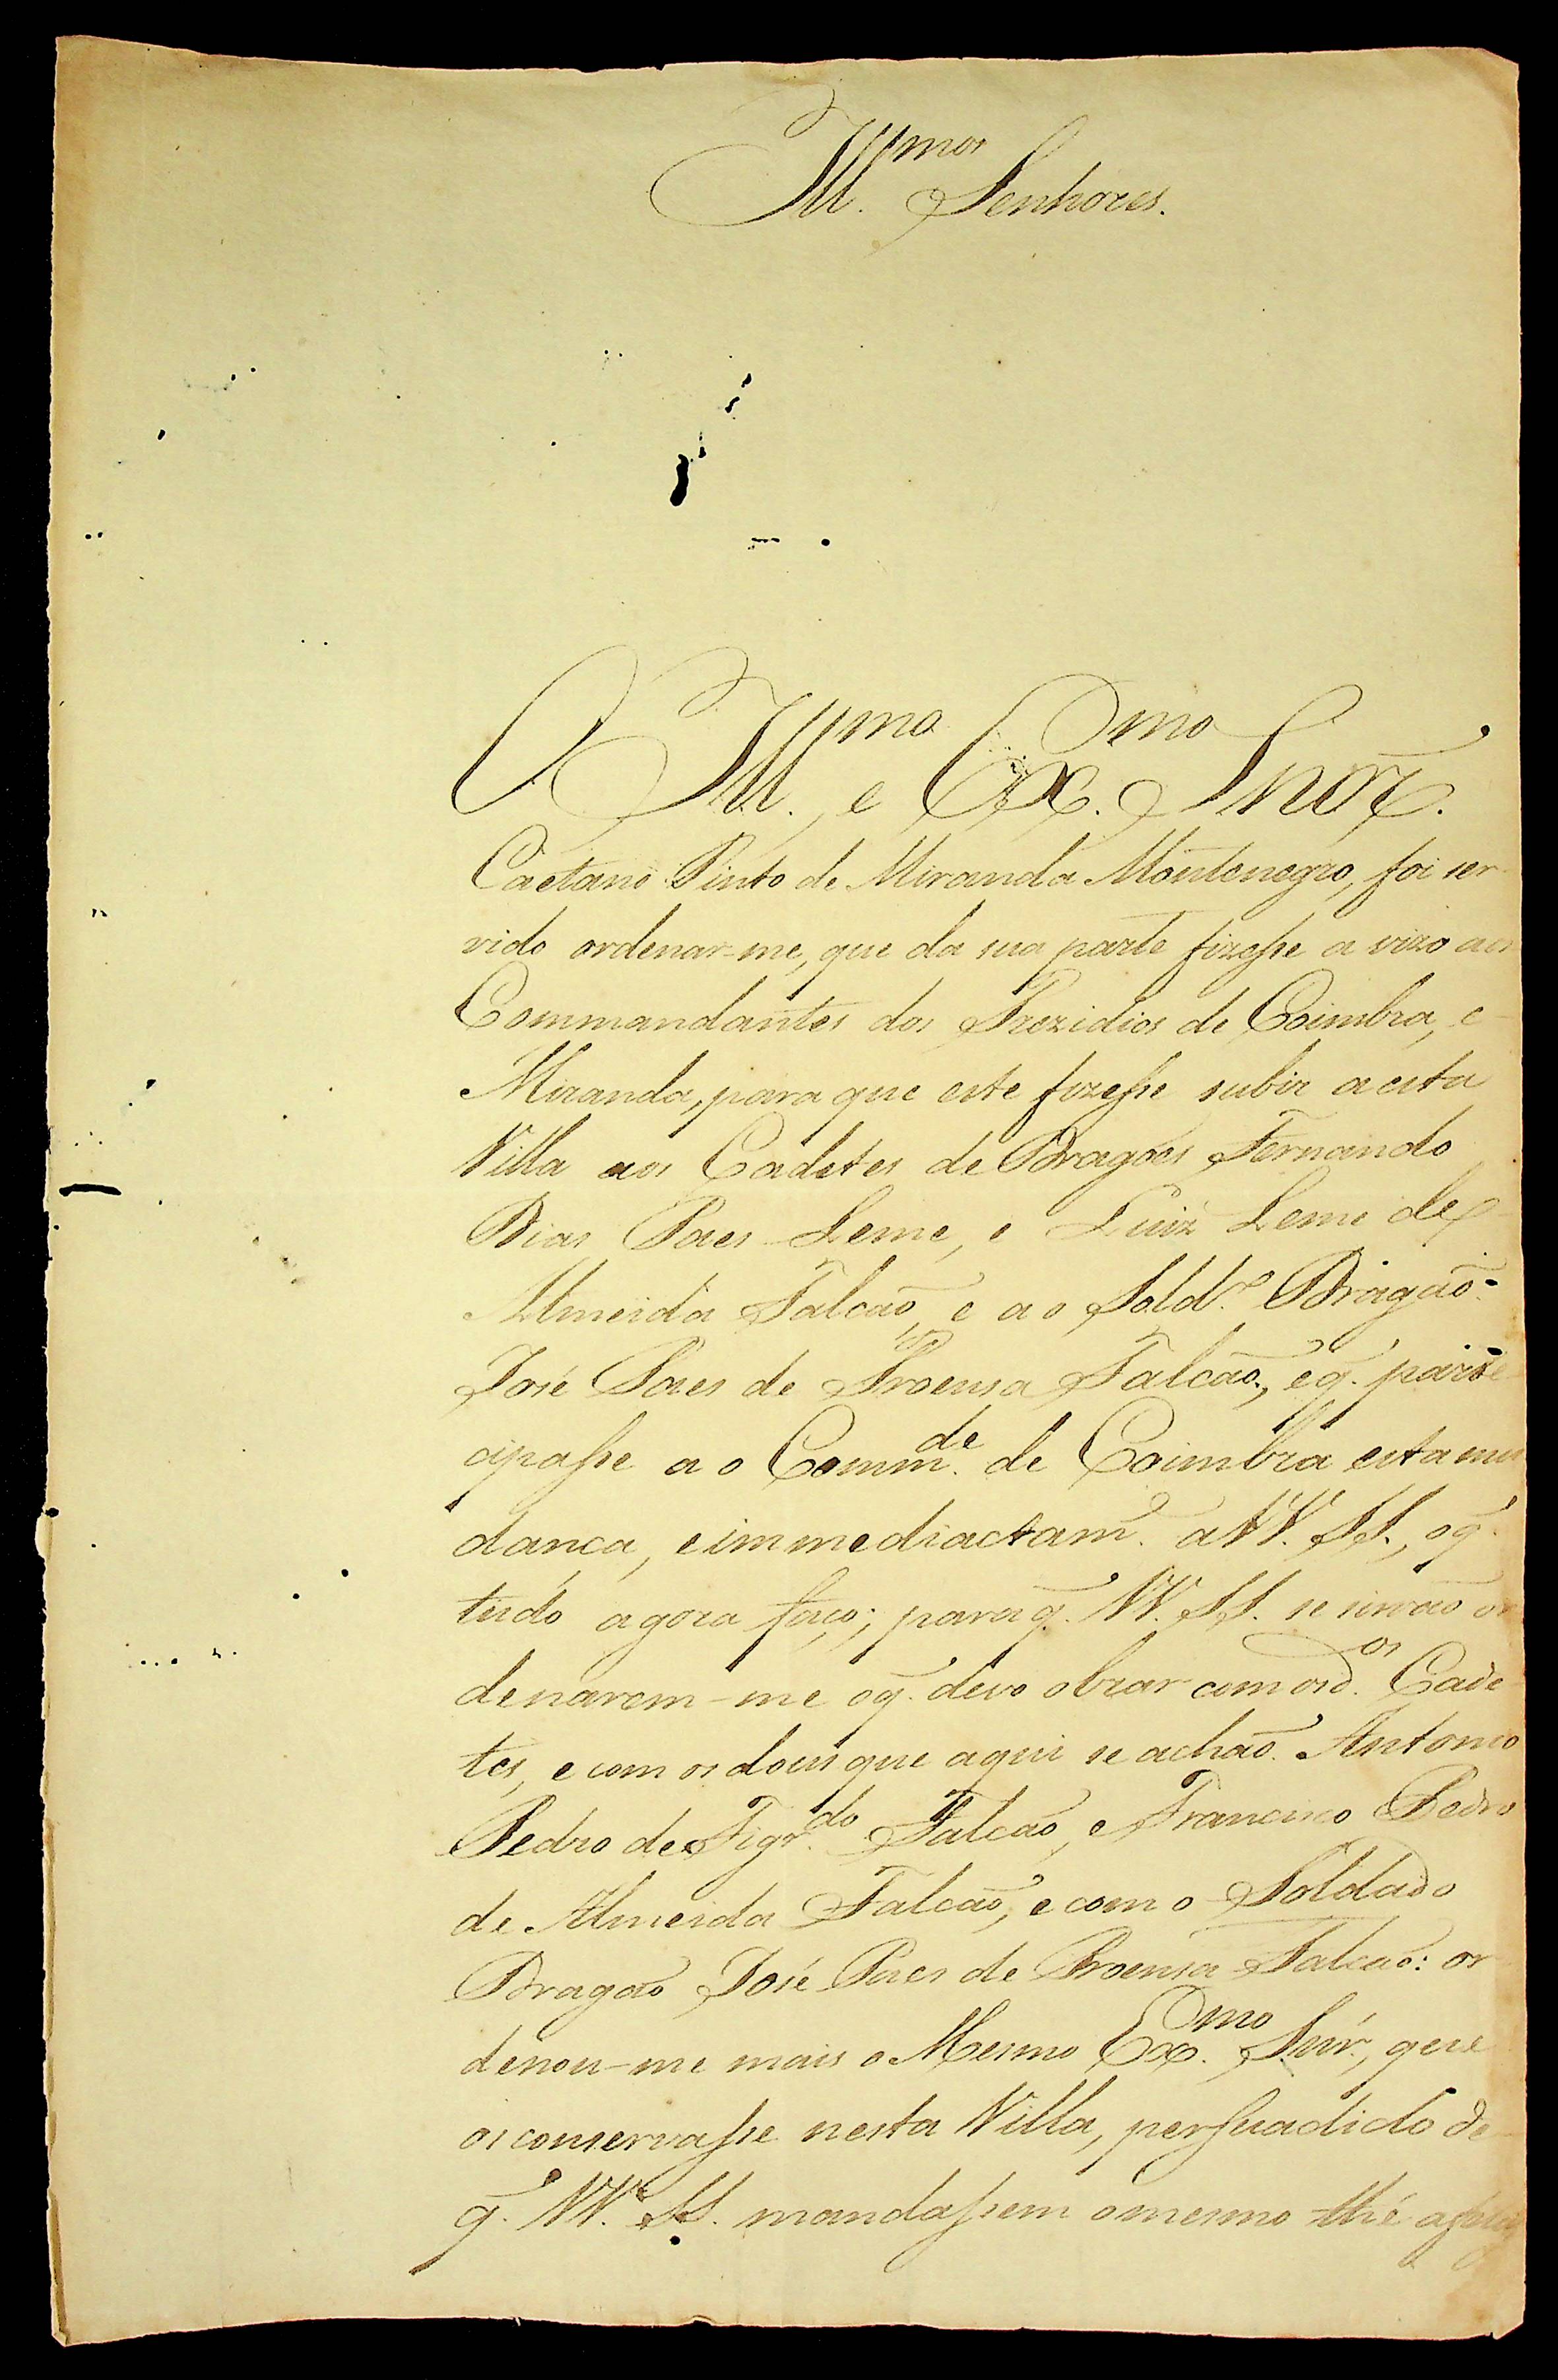 Ill.mos Senhores.
O Ill.mo, e Ex.mo Snõr.
Caetano Pinto de Miranda Montenegro, foi ser
vido ordenar-me, que da sua parte fizesse a vizo aos
Commandantes dos Prezidios de Coimbra, e
Miranda, para que este fizesse subir a esta
Villa aos Cadetes de Dragões Fernando
Dias Paes Leme, e Luiz Leme de
Almeida Falcão, e ao Sold.o Dragão
José Paes de Proensa Falcão, e q̃. parte
cipasse ao Comm.de de Coimbra esta mu
dança, e immediactam.e a VV. SS., o q̃.
tudo agora faço; para q̃. VV. SS. se sirvão or
denarem-me o q̃. devo obrar com os d.os Cade
tes, e com os dous que aqui se achão Antonio
Pedro de Figr.do Falcão, e Francisco Pedro
de Almeida Falcão, e com o Soldado
Dragão José Paes de Proensa Falcão: or
denou-me mais o Mesmo Ex.mo Snr., que
os conservasse nesta Villa, persuadido de
q̃. VV. SS. mandassem o mesmo thé